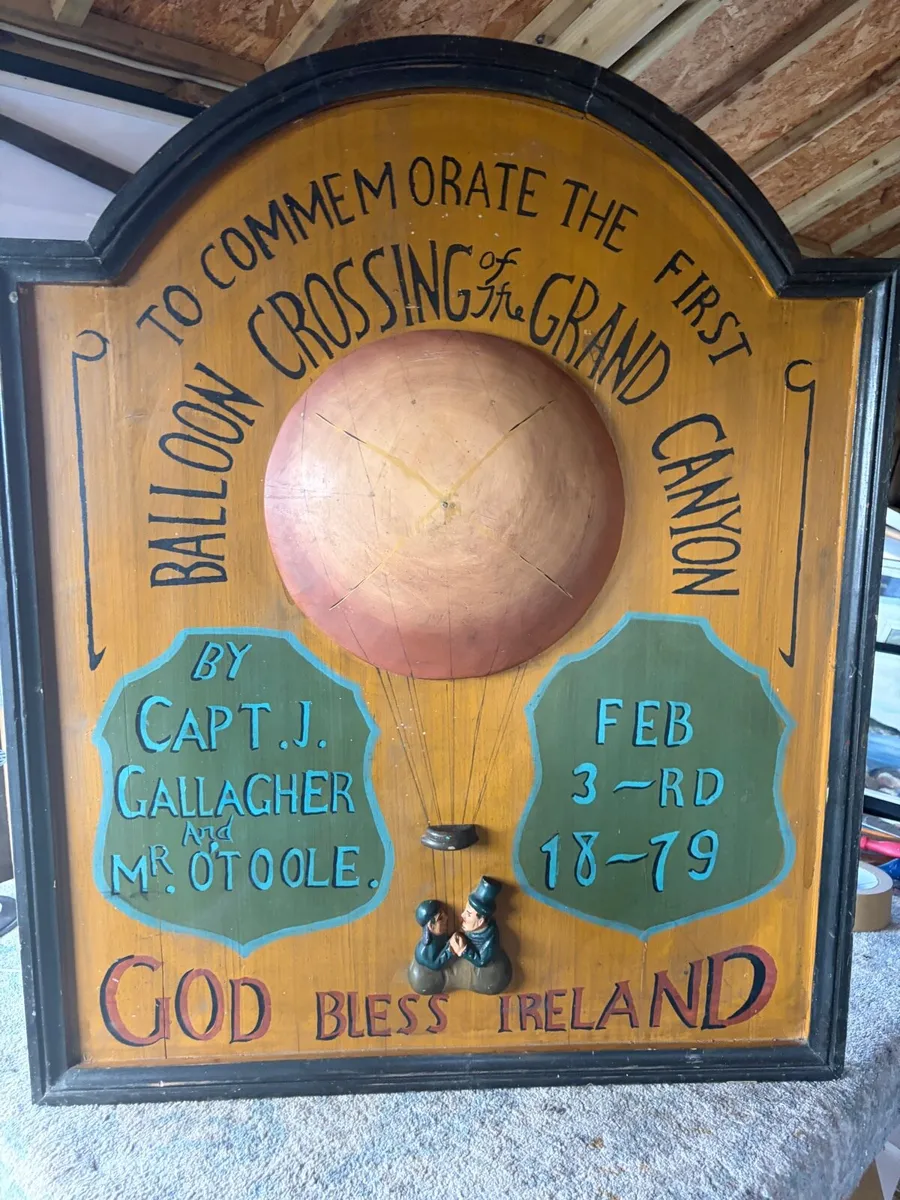 TO COMMEMORATE THE FIRST
BALLOON CROSSING of The GRAND CANYON
BY
CAPT. J.
GALLAGHER
And
MR. O'TOOLE.
FEB
3-RD
18-79
GOD BLESS IRELAND